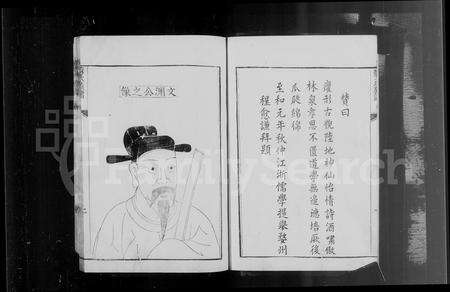 贊曰
癯形古貌陸地神仙怡情詩酒嘯傲
林泉孝思不匱道學無邊遺培厥後
瓜瓞綿綿
至和元年秋仲江浙儒學提舉婺州
程愈謙拜題
文淵公之像
FamilySearch